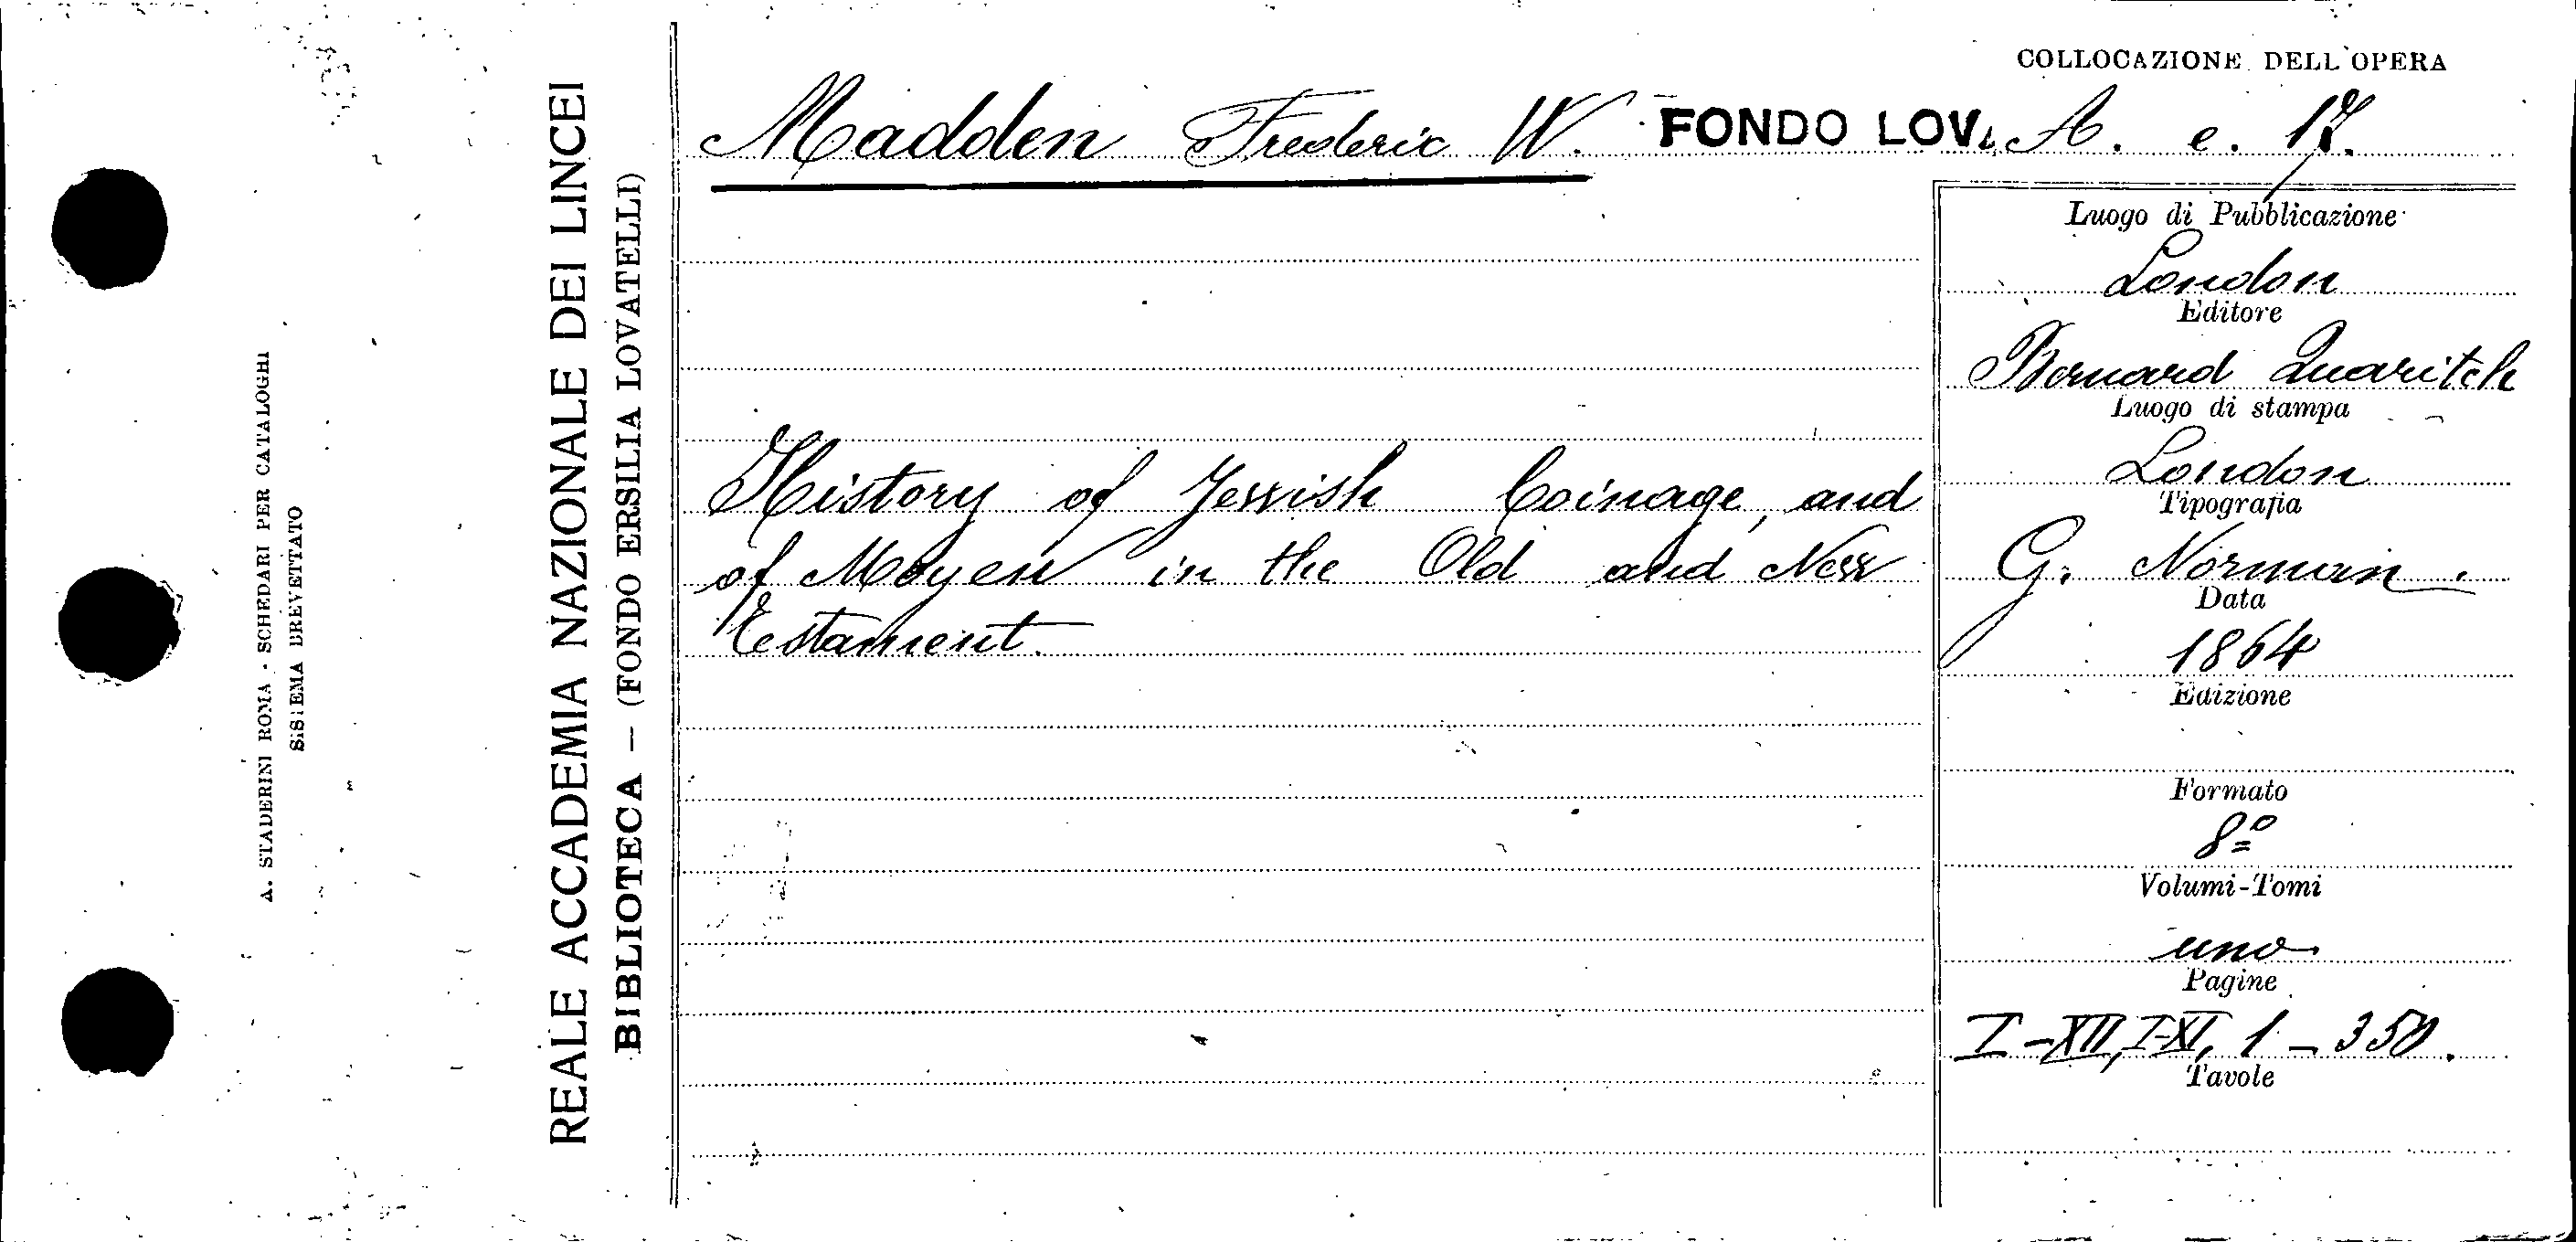 COLLOCAZIONE DELL'OPERA
Madden Frederic W. FONDO LOV. A. e. 17.
REALE ACCADEMIA NAZIONALE DEI LINCEI
BIBLIOTECA — (FONDO ERSILIA LOVATELLI)
A. STADERINI ROMA - SCHEDARI PER CATALOGHI
SISTEMA BREVETTATO
History of Jewish Coinage, and
of Moyen in the Old and New
Testament.
Luogo di Pubblicazione
London
Editore
Bernard Quaritch
Luogo di stampa
London
Tipografia
G. Norman.
Data
1864
Edizione
Formato
8º
Volumi-Tomi
uno
Pagine
I-XII, I-XI, 1-350.
Tavole